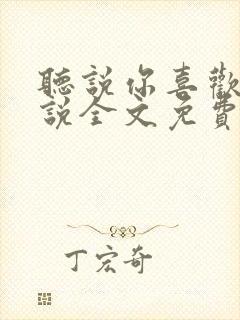 聽說你喜歡
說全文免費
丁宏奇